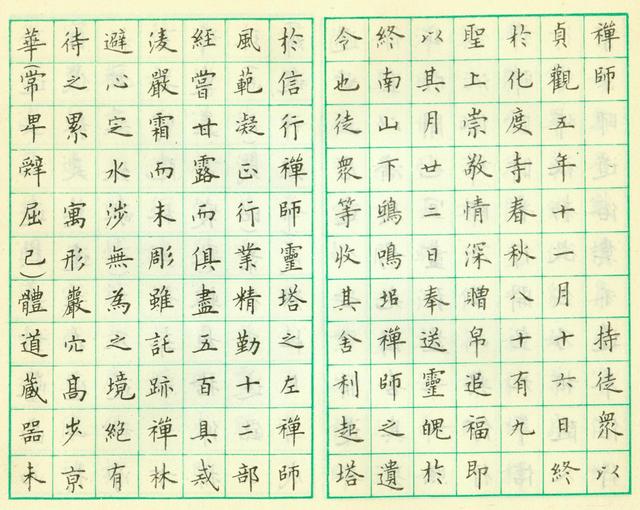 禪師 持徒衆以
貞觀五年十一月十六日終
於化度寺春秋八十有九
聖上崇敬情深贈帛追福即
以其月廿二日奉送靈魄於
終南山下鴟鳴垖禪師之遺
令也徒衆等收其舍利起塔
於信行禪師靈塔之左禪師
風範凝正行業精勤十二部
經嘗甘露而俱盡五百具戒
淩嚴霜而未彫雖託跡禪林
避心定水涉無為之境絕有
待之累 寓形巖穴高步京
華(常卑辭屈己)體道藏器未